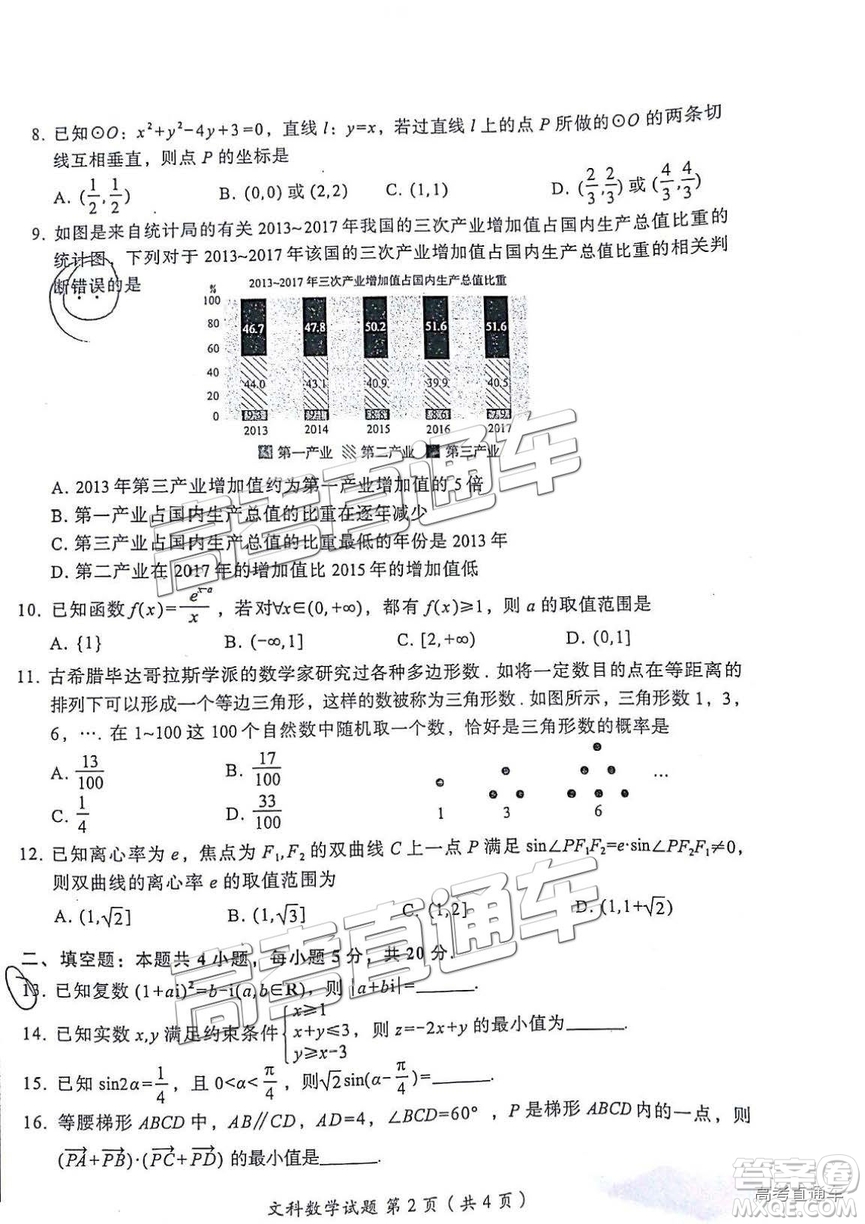 8. 已知⊙O：x²+y²-4y+3=0，直线 l：y=x，若过直线 l 上的点 P 所做的⊙O 的两条切
线互相垂直，则点 P 的坐标是
A. (1/2,1/2) B. (0,0) 或 (2,2) C. (1,1) D. (2/3,2/3) 或 (4/3,4/3)
9. 如图是来自统计局的有关 2013~2017 年我国的三次产业增加值占国内生产总值比重的
统计图，下列对于 2013~2017 年该国的三次产业增加值占国内生产总值比重的相关判
断错误的是
2013~2017 年三次产业增加值占国内生产总值比重
%
100
80
60
40
20
0
46.7 47.8 50.2 51.6 51.6
44.0 43.1 40.9 39.9 40.5
2013 2014 2015 2016 2017
第一产业 第二产业 第三产业
A. 2013 年第三产业增加值约为第一产业增加值的 5 倍
B. 第一产业占国内生产总值的比重在逐年减少
C. 第三产业占国内生产总值的比重最低的年份是 2013 年
D. 第二产业在 2017 年的增加值比 2015 年的增加值低
10. 已知函数 f(x)=e^(x-a)/x，若对∀x∈(0,+∞)，都有 f(x)≥1，则 a 的取值范围是
A. {1} B. (-∞,1] C. [2,+∞) D. (0,1]
11. 古希腊毕达哥拉斯学派的数学家研究过各种多边形数．如将一定数目的点在等距离的
排列下可以形成一个等边三角形，这样的数被称为三角形数．如图所示，三角形数 1，3，
6，…．在 1~100 这 100 个自然数中随机取一个数，恰好是三角形数的概率是
A. 13/100 B. 17/100
C. 1/4 D. 33/100
1 3 6 …
12. 已知离心率为 e，焦点为 F₁,F₂ 的双曲线 C 上一点 P 满足 sin∠PF₁F₂=e·sin∠PF₂F₁≠0，
则双曲线的离心率 e 的取值范围为
A. (1,√2] B. (1,√3] C. (1,2] D. (1,1+√2)
二、填空题：本题共 4 小题，每小题 5 分，共 20 分．
13. 已知复数 (1+ai)²=b-i(a,b∈R)，则 |a+bi|=______.
14. 已知实数 x,y 满足约束条件{x≥1 x+y≤3，则 z=-2x+y 的最小值为______.
y≥x-3
15. 已知 sin2α=1/4，且 0<α<π/4，则√2sin(α-π/4)=______.
16. 等腰梯形 ABCD 中，AB∥CD，AD=4，∠BCD=60°，P 是梯形 ABCD 内的一点，则
(PA→+PB→)·(PC→+PD→) 的最小值是______.
文科数学试题 第 2 页（共 4 页）
高考直通车
高考直通车
答案圈
高考直通车
MXQE.COM